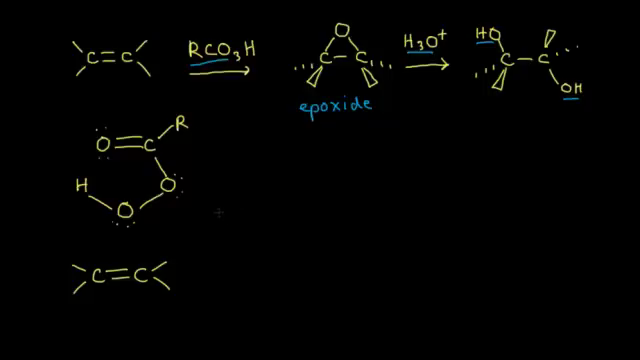 C=C RCO₃H O C-C H₃O⁺ HO C-C OH
epoxide
O=C R
H O O
C=C